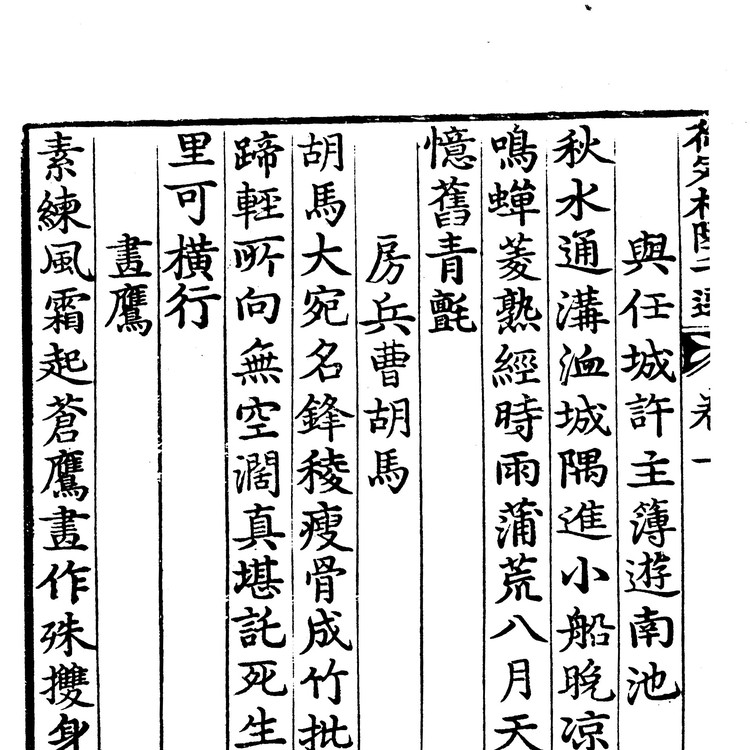 卷一
與任城許主簿遊南池
秋水通溝洫城隅進小船晚凉
鳴蟬菱熟經時雨蒲荒八月天
憶舊青氈
房兵曹胡馬
胡馬大宛名鋒稜瘦骨成竹批
蹄輕所向無空濶真堪託死生
里可橫行
畫鷹
素練風霜起蒼鷹畫作殊㩳身